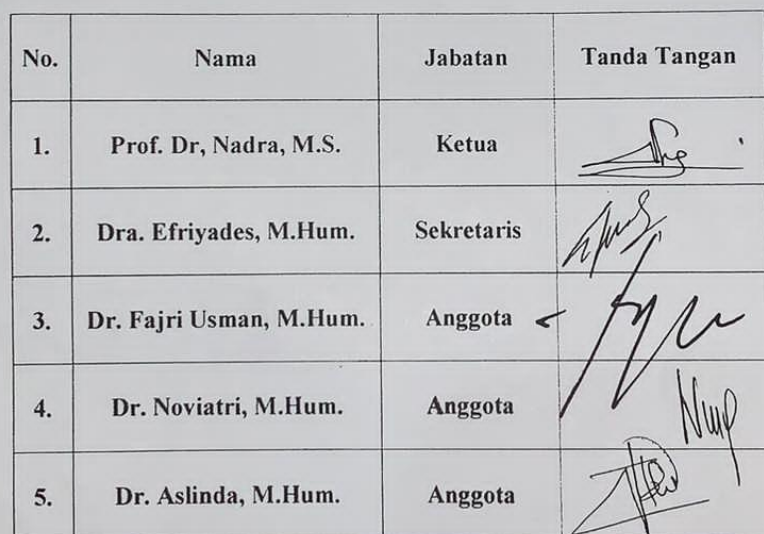 No. Nama Jabatan Tanda Tangan
1. Prof. Dr, Nadra, M.S. Ketua
2. Dra. Efriyades, M.Hum. Sekretaris
3. Dr. Fajri Usman, M.Hum. Anggota
4. Dr. Noviatri, M.Hum. Anggota
5. Dr. Aslinda, M.Hum. Anggota